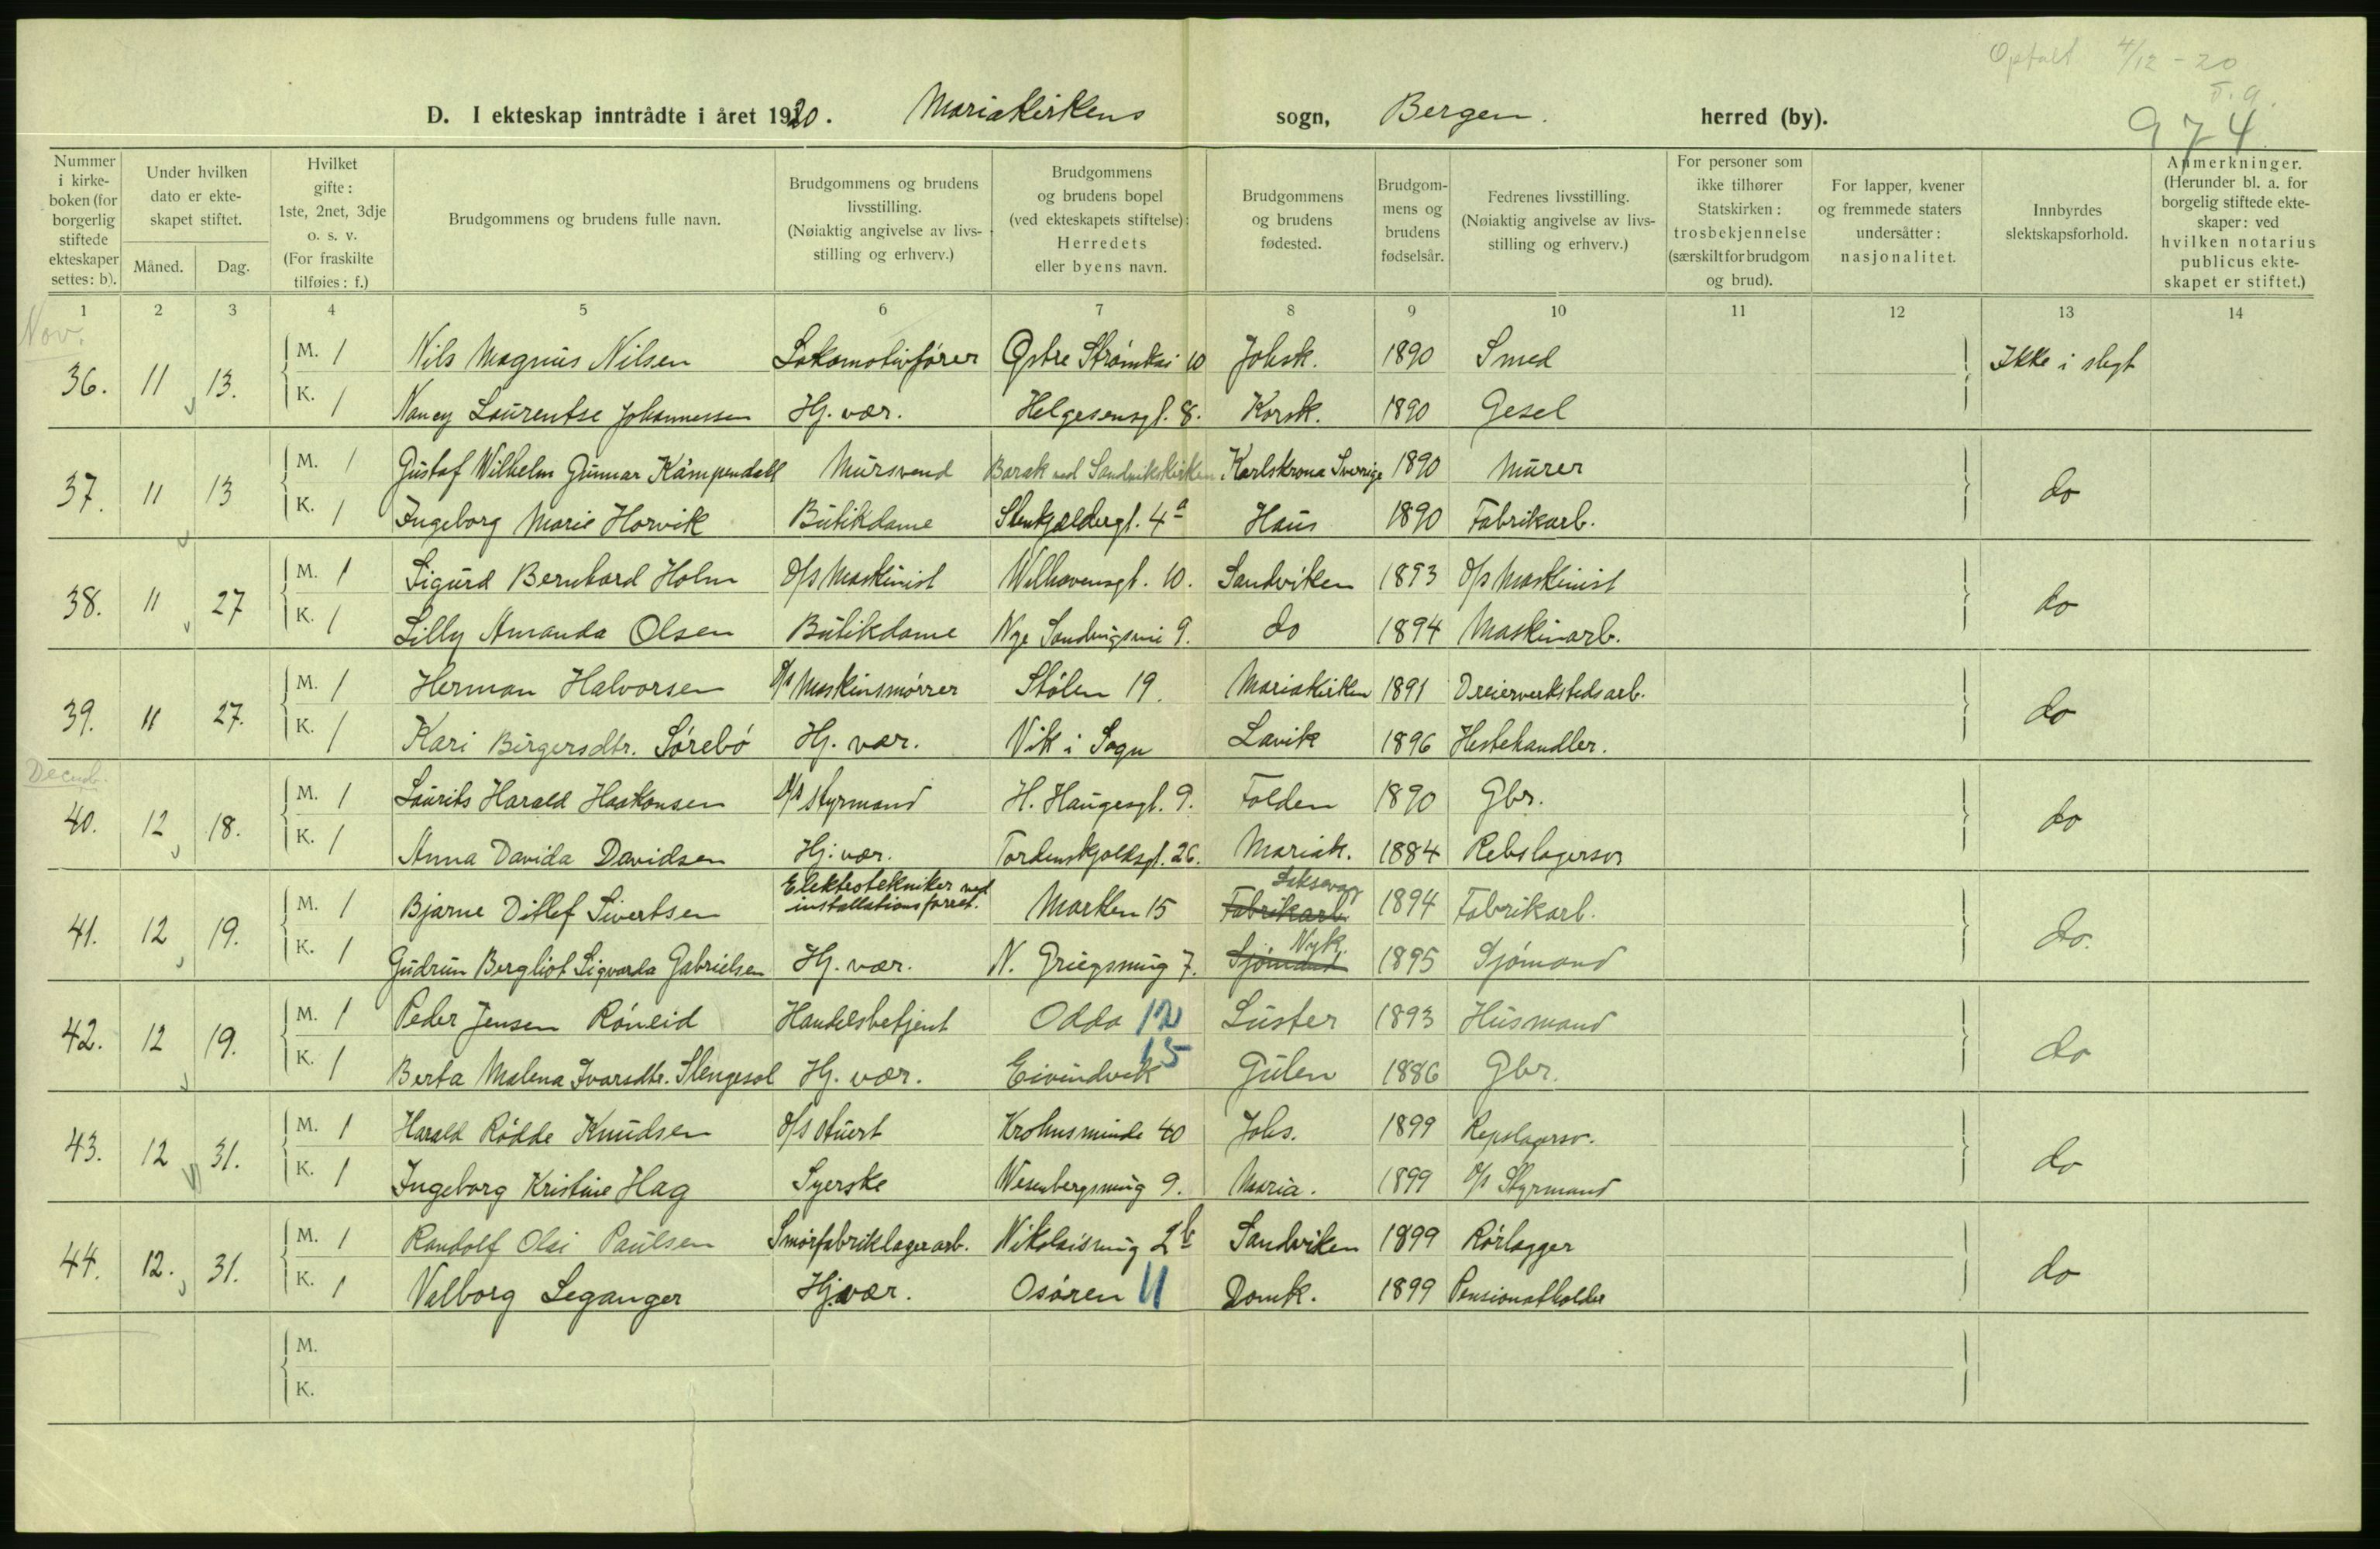 Opfalt 4/12 - 20
T. a.
974
D. I ekteskap inntrådte i året 1920. Mariakirkens sogn, Bergen. herred (by).
Nummer i kirke-boken (for borgerlig stiftede ekteskaper settes: b).
Under hvilken dato er ekte-skapet stiftet.
Måned. Dag.
Hvilket gifte: 1ste, 2net, 3dje o. s. v. (For fraskilte tilføies: f.)
Brudgommens og brudens fulle navn.
Brudgommens og brudens livsstilling. (Nøiaktig angivelse av livs-stilling og erhverv.)
Brudgommens og brudens bopel (ved ekteskapets stiftelse): Herredets eller byens navn.
Brudgommens og brudens fødested.
Brudgom-mens og brudens fødselsår.
Fedrenes livsstilling. (Nøiaktig angivelse av livs-stilling og erhverv.)
For personer som ikke tilhører Statskirken: trosbekjennelse (særskilt for brudgom og brud).
For lapper, kvener og fremmede staters undersåtter: nasjonalitet.
Innbyrdes slektskapsforhold.
Anmerkninger. (Herunder bl. a. for borgelig stiftede ekte-skaper: ved hvilken notarius publicus ekte-skapet er stiftet.)
1 2 3 4 5 6 7 8 9 10 11 12 13 14
Nov.
36. 11 13. M. 1 Nils Magnus Nilsen Lokomotivfører Østre Strømkai 10 Johsk. 1890 Smed Ikke i slegt
K. 1 Nancy Laurentse Johannessen Hj. vær. Helgesensgt. 8. Korsk. 1890 Gesel
37. 11 13 M. 1 Gustaf Wilhelm Gunnar Kämpendahl Mursvend Barak ved Sandvikskirken Karlskrona Sverige 1890 Murer do
K. 1 Ingeborg Marie Horvik Butikdame Stenkjeldergt. 4a Haus 1890 Fabrikarb.
38. 11 27 M. 1 Sigurd Bernhard Holm D/s Maskinist Welhavensgt. 10. Sandviken 1893 D/s Maskinist do
K. 1 Lilly Amanda Olsen Butikdame Nye Sandvigsvei 9. do 1894 Maskinarb.
39. 11 27. M. 1 Herman Halvorsen D/s Maskinsmørrer Stølen 19. Mariakirken 1891 Dreierverkstedsarb. do
K. 1 Kari Birgersdtr. Sørebø Hj. vær. Vik i Sogn Lavik 1896 Hestehandler.
Decemb.
40. 12 18. M. 1 Laurits Harald Haakonsen D/s styrmand H. Haugesgt. 9. Folden 1890 Gbr. do
K. 1 Anna Davida Davidsen Hj. vær. Tordenskjoldsgt. 26. Mariak. 1884 Rebslagersv
41. 12 19. M. 1 Bjarne Ditlef Sivertsen Elektrotekniker ved installationsforret. Marken 15 Fabrikarb. Laksevag 1894 Fabrikarb. do.
K. 1 Gudrun Bergliot Sigvarda Gabrielsen Hj. vær. N. Griegsmug 7. Sjømand Nyk. 1895 Sjømand
42. 12 19. M. 1 Peder Jensen Røneid Handelsbetjent Odda 12 Luster 1893 Husmand do
K. 1 Berta Malena Ivarsdtr. Stengesol Hj. vær. Eivindvik 15 Gulen 1886 Gbr.
43. 12 31. M. 1 Harald Rødde Knudsen D/s stuert Krohnsminde 40 Johs. 1899 Repslagersv. do
K. 1 Ingeborg Kristine Hag Syerske Wesenbergsmug 9. Maria. 1899 D/s Styrmand
44. 12. 31. M. 1 Randolf Olai Paulsen Smørfabriklagerarb. Nikolaismug 2b Sandviken 1899 Rørlægger do
K. 1 Valborg Leganger Hj.vær. Osøren 11 Domk. 1899 Pensionatholder
M.
K.